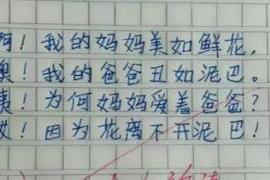 啊！我的妈妈美如鲜花，
噢！我的爸爸丑如泥巴。
咦！为何妈妈爱着爸爸？
哎！因为花离不开泥巴！